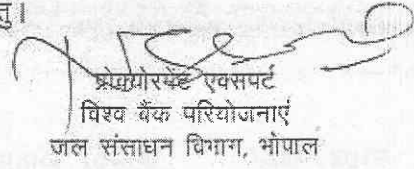 तु।
प्रोक्योरमेंट एक्सपर्ट
विश्व बैंक परियोजनाएं
जल संसाधन विभाग, भोपाल